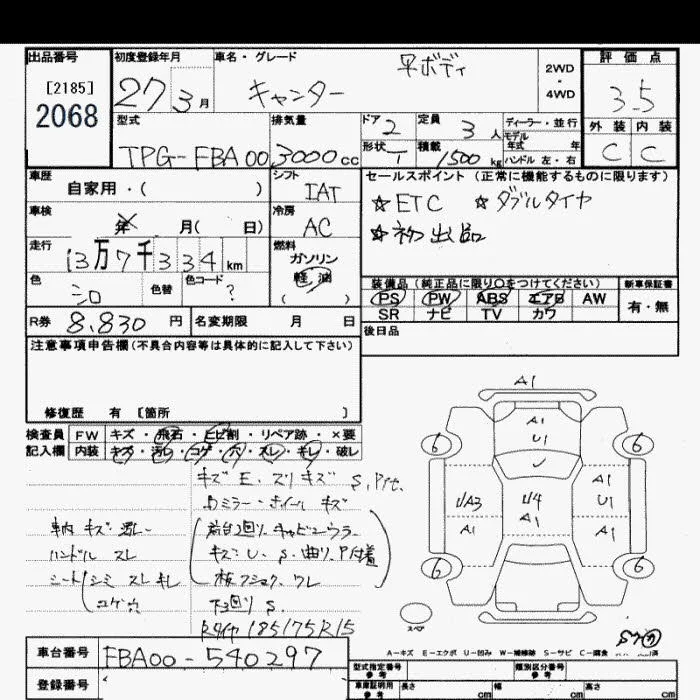 出品番号
[2185]
2068
初度登録年月
27 3月
車名・グレード
平ボディ
キャンター
2WD
・
4WD
評価点
3.5
型式
TPG-FBA00
排気量
3000cc
ドア
2
形状
定員
3人
積載
1500kg
ディーラー・並行
モデル
年式 年
ハンドル 左・右
外装 内装
C C
車歴
自家用・( )
シフト
IAT
セールスポイント(正常に機能するものに限ります)
☆ETC ☆ダブルタイヤ
☆初出品
車検
年 月( 日)
冷房
AC
走行
13万7千334km
燃料
ガソリン
軽油
( )
色
シロ
色替
色コード
?
装備品(純正品に限り○をつけてください)
PS PW ABS エアB AW
SR ナビ TV カワ
新車保証書
有・無
R券 8,830円
名変期限 月 日
後日品
注意事項申告欄(不具合内容等は具体的に記入して下さい)
修復歴 有 [箇所 ]
検査員
記入欄
FW キズ・飛石・ヒビ割・リペア跡・×要
内装 キズ・汚レ・コゲ・穴・スレ・キレ・破レ
キズ E. スリキズ S,
ミラー・ホイール キズ
車内 キズ 汚レ
ハンドル スレ
シート シミ スレ キレ
コゲ穴
荷台回り、キャビンウラ
キズ U. S. 曲り、P付着
下回り S.
Rタイヤ 185/75R15
A1
A1
U1
U
6 6
U/A3
U4
A1
A1
U1
A1
A1
6 6
スペア
A-キズ E-エクボ U-凹み W-補修跡 S-サビ C-腐食
車台番号
FBA00-540297
登録番号
型式指定番号
参考
類別区分番号
参考
車庫証明用
参考
長さ cm
幅 cm
高さ cm